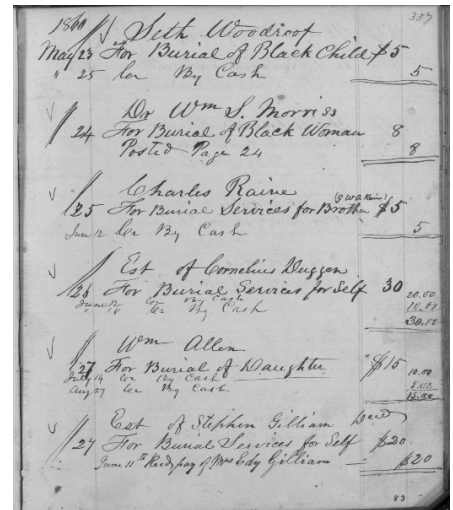 337
1860 Seth Woodroof
May 23 For Burial of Black Child $5
" 25 Cr By Cash 5
Dr Wm S. Morriss
24 For Burial of Black Woman 8
Posted Page 24 8
Charles Raine
25 For Burial Services for Brother $5
June 12 Cr By Cash 5
Est of Cornelius Duggan
26 For Burial Services for Self 30
June Cr By Cash 20.00
Cr By Cash
30.00
Wm Allen
27 For Burial of Daughter $15
July 14 Cr By Cash 10.00
Aug 27 Cr By Cash 5.00
15.00
Est of Stephen Gilliam Decd
27 For Burial Services for Self $20
June 11th Recd pay of Mrs Edy Gilliam $20
83